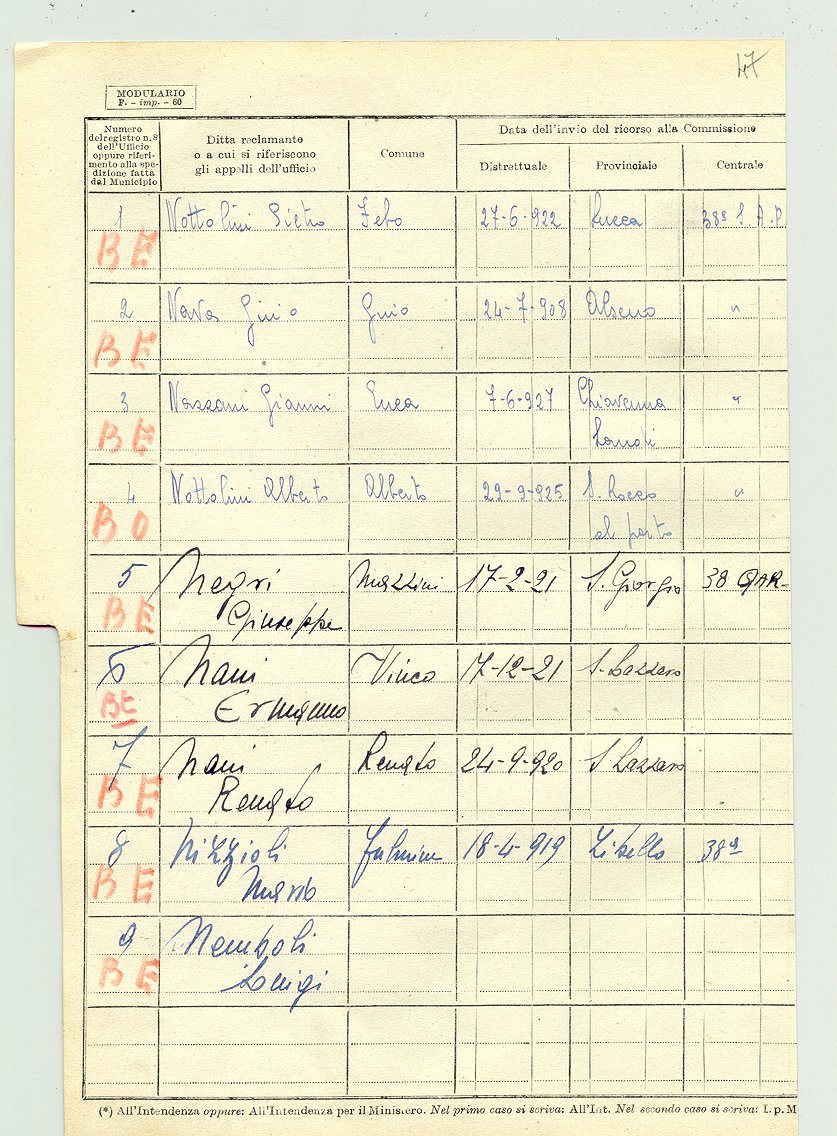 47
MODULARIO
F. - imp. - 60
Numero
del registro n. 8
dell'Ufficio
oppure riferi-
mento alla spe-
dizione fatta
dal Municipio
Ditta reclamante
o a cui si riferiscono
gli appelli dell'ufficio
Comune
Data dell'invio del ricorso alla Commissione
Distrettuale
Provinciale
Centrale
1 Nottolini Pietro Febo 27-6-922 Lucca 38ª S. A. P.
B E
2 Nava Guio Guio 24-7-908 Alseno "
B E
3 Nassani Gianni Luca 7-6-927 Chiavenna "
B E Landi
4 Nottolini Alberto Alberto 29-9-925 S. Rocco "
B O al porto
5 Negri Mazzini 17-2-21 S. Giorgio 38 GAR-
B E Giuseppe
6 Nani 17-12-21 S. Lazzaro
BE Ermanno
7 Nani Renato 24-9-920 S Lazzaro
B E Renato
8 Nizzioli Fulmine 18-4-919 Zibello 38ª
B E Mario
9
B E Luigi
(*) All'Intendenza oppure: All'Intendenza per il Ministero. Nel primo caso si scriva: All'Int. Nel secondo caso si scriva: I. p. M